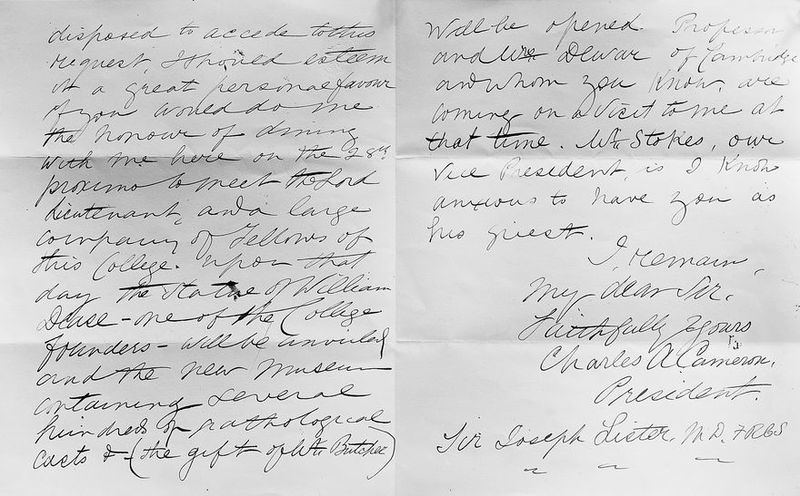 disposed to accede to this
request, I should esteem
it a great personal favour
if you would do me
the honour of dining
with me here on the 28th
proximo to meet the Lord
Lieutenant, and a large
company of Fellows of
this College. Upon that
day the statue of William
Dease - one of the College
founders - will be unveiled
and the new Museum
containing several
hundreds of pathological
casts & (the gift of Mr Butcher)
will be opened. Professor
and Mrs Dewar of Cambridge
and whom you know, are
coming on a visit to me at
that time. Mr Stokes, our
Vice President, is I know
anxious to have you as
his guest.
I remain,
My dear Sir,
Faithfully Yours
Charles A Cameron,
President.
Sir Joseph Lister, M.D. FRCS